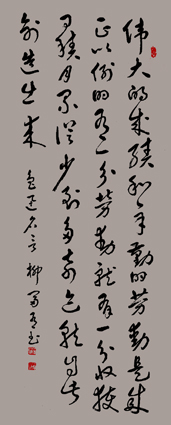 伟大的成绩和辛勤的劳动是成
正比例的有一分劳动就有一分收获
日积月累从少到多奇迹就可以
创造出来
鲁迅名言 柳
书